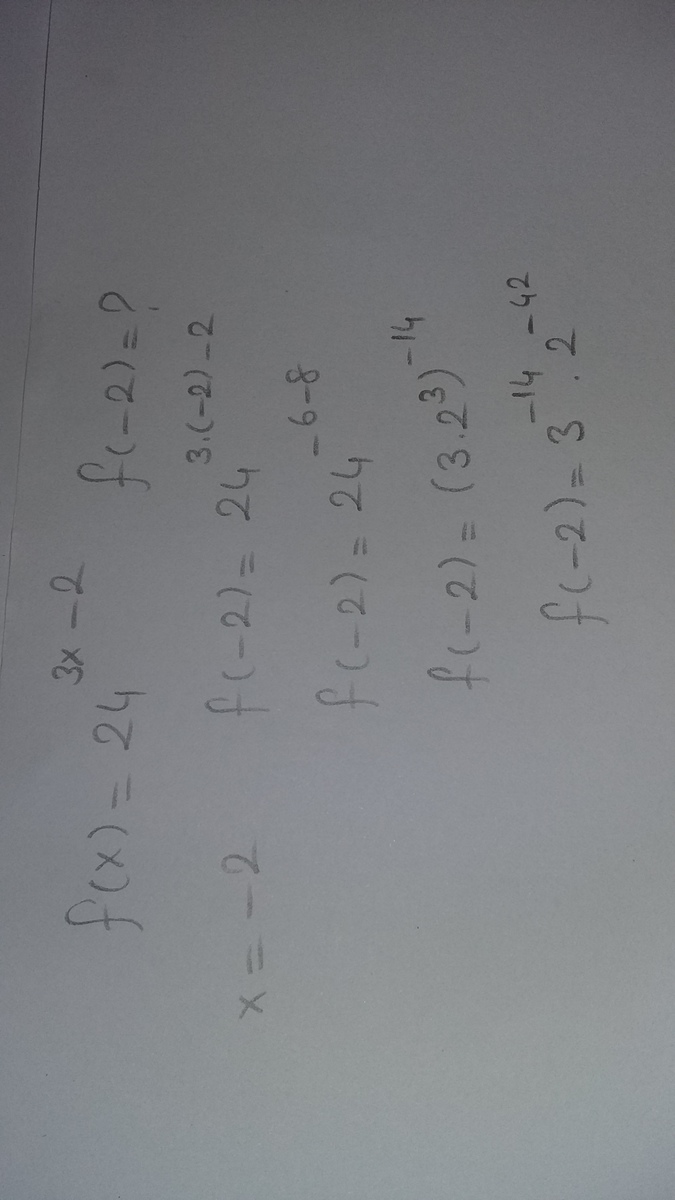 f(x) = 24^{3x-2} f(-2) = ?
x = -2 f(-2) = 24^{3.(-2)-2}
f(-2) = 24^{-6-8}
f(-2) = (3.2^3)^{-14}
f(-2) = 3^{-14} . 2^{-42}